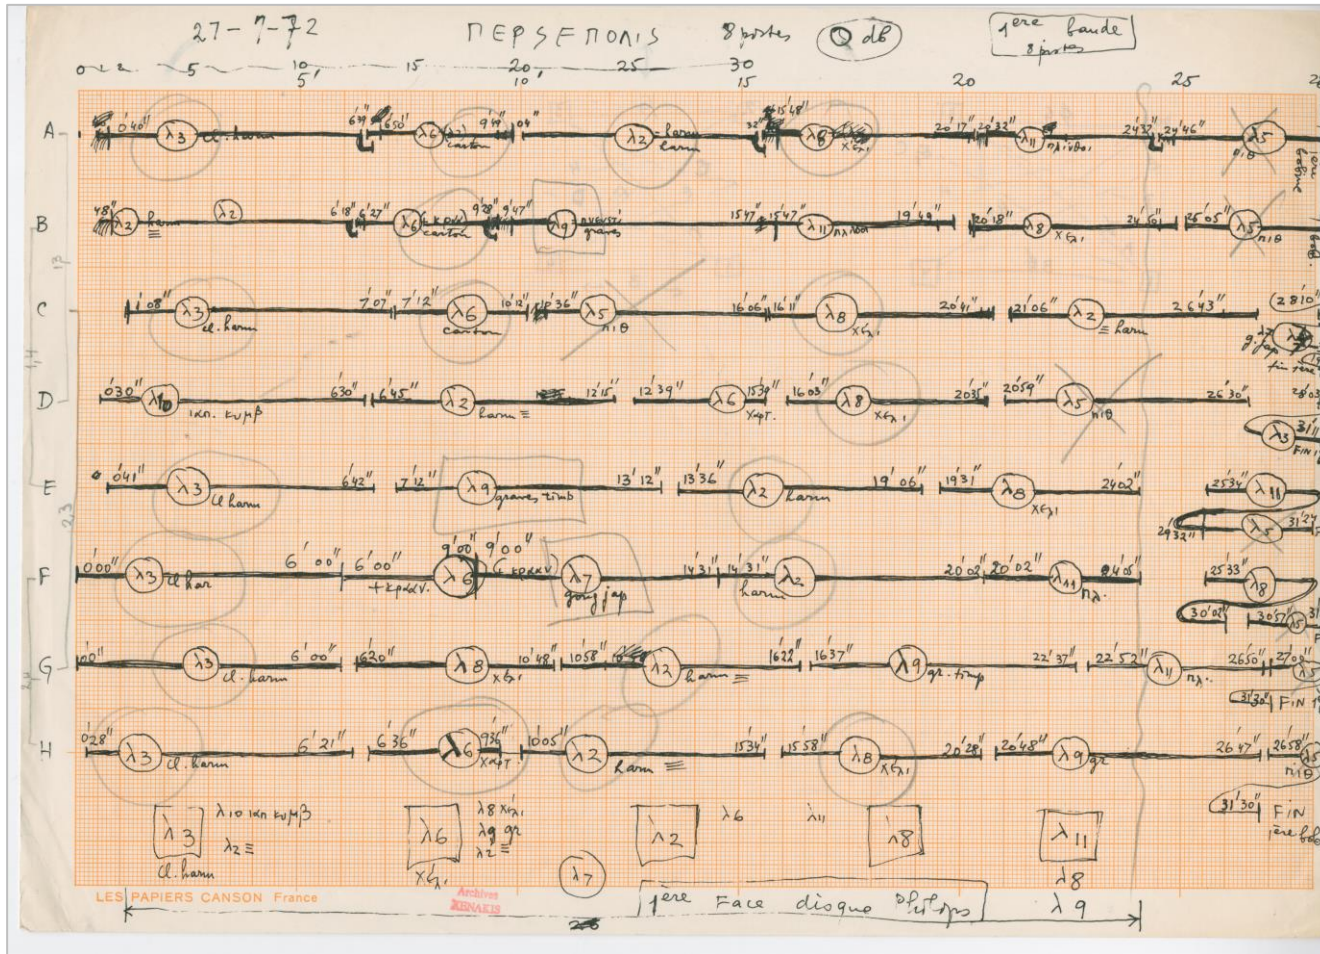 27-7-72 ΠΕΡSΕΠΟΛΙS 8 postes 0 dB 1ère bande
8 postes
0 1 2 5 10 15 20 25 30
5' 10' 15 20 25
A 0'40" λ3 cl. harm 6'39" 6'50" λ6 carton 9'49" λ2 harm 15'48" λ8 χελι 20'17" 20'32" λ11 πλίνθοι 24'37 24'46" λ5 πιθ
harm
B 48" λ2 harm λ2 6'18" 6'27" λ6 carton 9'28" 9'47" λ9 graves 15'47 15'47" λ11 19'49" 20'18" λ8 χελι 24'50" 25'05" λ5 πιθ
C 1'08" λ3 cl. harm 7'07" 7'12" λ6 carton 10'12" 10'36" λ5 πιθ 16'06" 16'11" λ8 χελι 20'41" 21'06" λ2 ≡ harm 26'43" 28'10"
g. jap
D 0'30" λ10 ιαπ. κυμβ 6'30" 6'45" λ2 harm ≡ 12'15" 12'39" λ6 χαρτ. 15'39" 16'03" λ8 χελι 20'35 20'59" λ5 πιθ 26'30" 28'03
λ3 31'11
FIN
E 0'41" λ3 cl harm 6'42" 7'12" λ9 graves timb 13'12" 13'36" λ2 harm 19'06" 19'31 λ8 χελι 24'02" 25'34" λ11
29'32" λ5 31'27
F 0'00" λ3 cl har 6'00" 6'00" + κρααν. 9'00" λ6 9'00" (+ κρααν) λ7 gong jap 14'31" 14'31" λ2 harm 20'02 20'02" λ11 πλ. 24'05" 25'33" λ8
30'02" 30'57 λ5 31
G 00" λ3 cl. harm 6'00" 6'20" λ8 χελι 10'48" 10'58" λ2 harm ≡ 16'22" 16'37" λ9 gr. timp 22'37" 22'52" λ11 πλ. 26'50" 27'00" λ5
31'30" FIN 1
H 0'28" λ3 cl. harm 6'21" 6'36" λ6 χαρτ. 9'36" 10'05" λ2 harm ≡ 15'34" 15'58" λ8 χελι 20'28" 20'48" λ9 gr 26'47" 26'58" λ5
πιθ
31'30" FIN
1ère bob
λ3 λ10 ιαπ κυμβ λ6 λ8 χελι λ2 λ6 λ11 λ8 λ11
λ2 ≡ λ9 gr
λ2 ≡
cl. harm χελι λ7 λ8
LES PAPIERS CANSON France Archives 1ère Face disque Philips λ9
XENAKIS